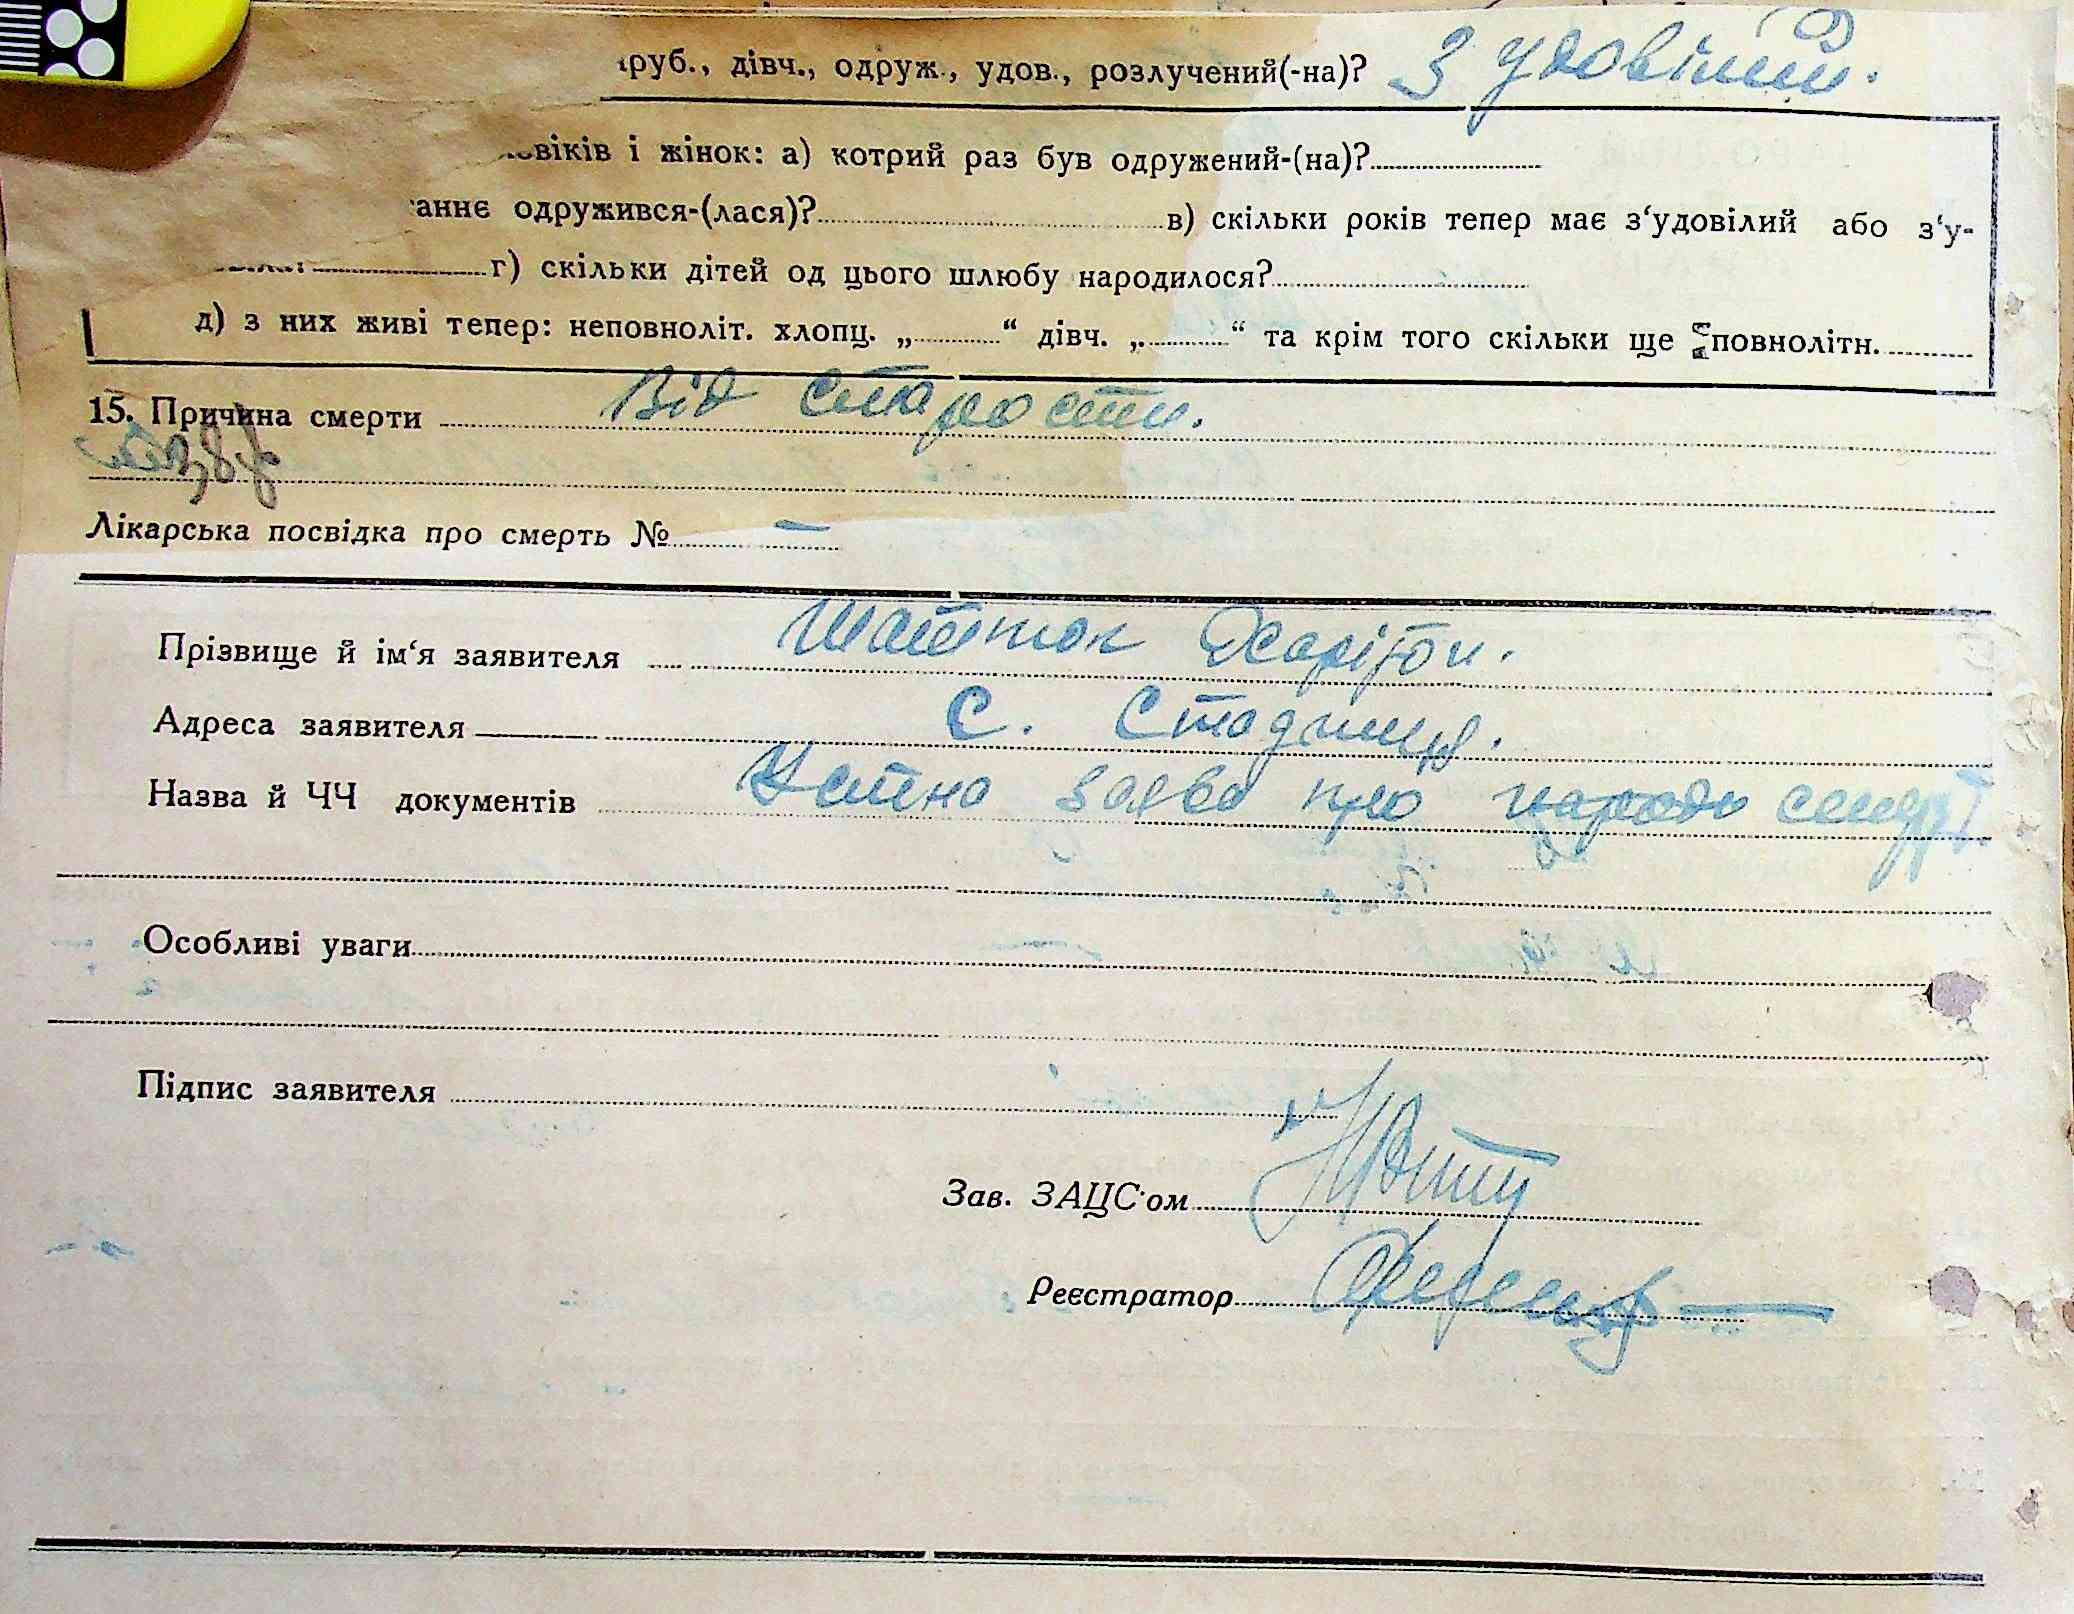 руб., дівч., одруж., удов., розлучений(-на)? З удовілий.
овіків і жінок: а) котрий раз був одружений-(на)?
аннє одружився-(лася)? в) скільки років тепер має з‘удовілий або з‘у-
г) скільки дітей од цього шлюбу народилося?
д) з них живі тепер: неповноліт. хлопц. „ “ дівч. „ “ та крім того скільки ще повнолітн.
15. Причина смерти Від старости.
Лікарська посвідка про смерть № –
Прізвище й ім‘я заявителя Харітон.
Адреса заявителя С. Стадниця.
Назва й ЧЧ документів Устна заява про смерт
Особливі уваги
Підпис заявителя
Зав. ЗАЦС‘ом
Реєстратор